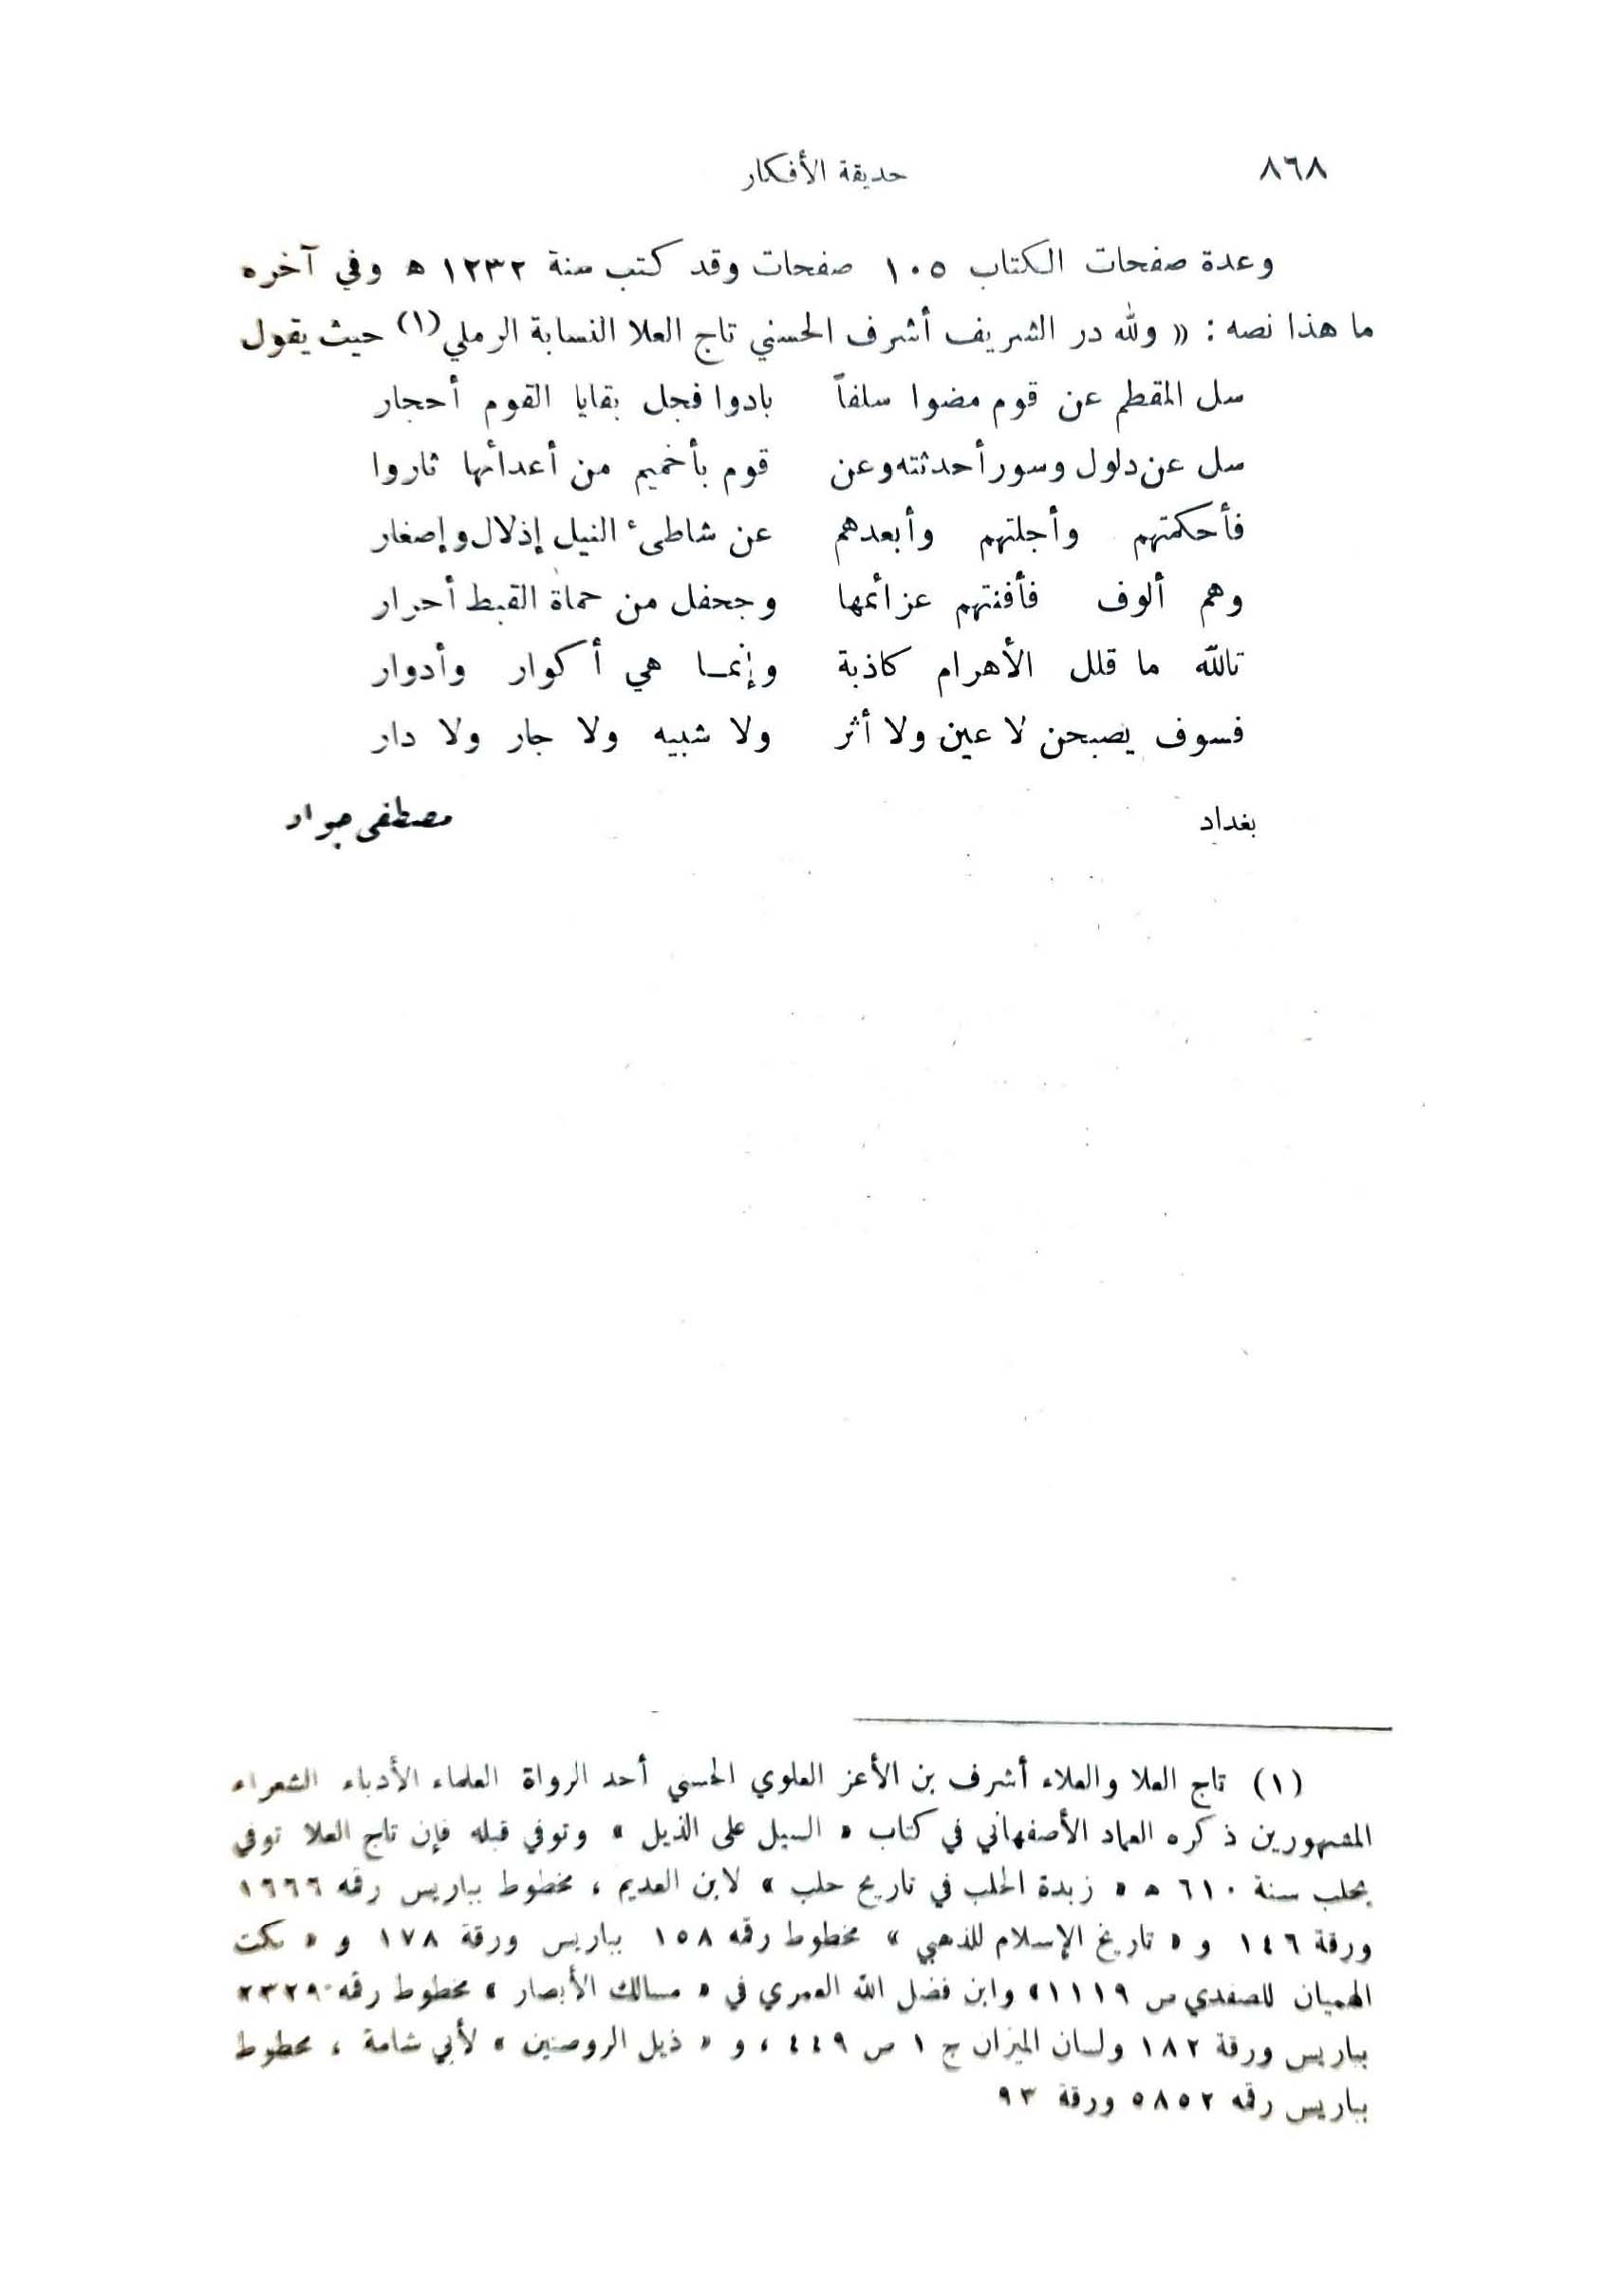 ٨٦٨
حديقة الأفكار
وعدة صفحات الكتاب ١٠٥ صفحات وقد كتب سنة ١٢٣٢ هـ وفي آخره
ما هذا نصه : « ولله در الشريف أشرف الحسني تاج العلا النسابة الرملي (١) حيث يقول
سل المقطم عن قوم مضوا سلفاً بادوا فجل بقايا القوم أحجار
سل عن دلول وسور أحدثته وعن قوم بأخميم من أعدائها ثاروا
فأحكمتهم وأجلتهم وأبعدهم عن شاطىء النيل إذلال وإصغار
وهم ألوف فأفنتهم عزائمها وجحفل من حماة القبط أحرار
تالله ما قلل الأهرام كاذبة وإنما هي أكوار وأدوار
فسوف يصبحن لا عين ولا أثر ولا شبيه ولا جار ولا دار
بغداد مصطفى جواد
(١) تاج العلا والعلاء أشرف بن الأعز العلوي الحسني أحد الرواة العلماء الأدباء الشعراء
المشهورين ذكره العماد الأصفهاني في كتاب « السيل على الذيل » وتوفي قبله فإن تاج العلا توفي
بحلب سنة ٦١٠ هـ « زبدة الحلب في تاريخ حلب » لابن العديم ، مخطوط بباريس رقمه ١٦٦٦
ورقة ١٤٦ و « تاريخ الإسلام للذهبي » مخطوط رقمه ١٥٨ بباريس ورقة ١٧٨ و « نكت
الهميان للصفدي ص ١١١٩» وابن فضل الله العمري في « مسالك الأبصار » مخطوط رقمه ٢٣٢٩
بباريس ورقة ١٨٢ ولسان الميزان ج ١ ص ٤٤٩ ، و « ذيل الروضتين » لأبي شامة ، مخطوط
بباريس رقمه ٥٨٥٢ ورقة ٩٣